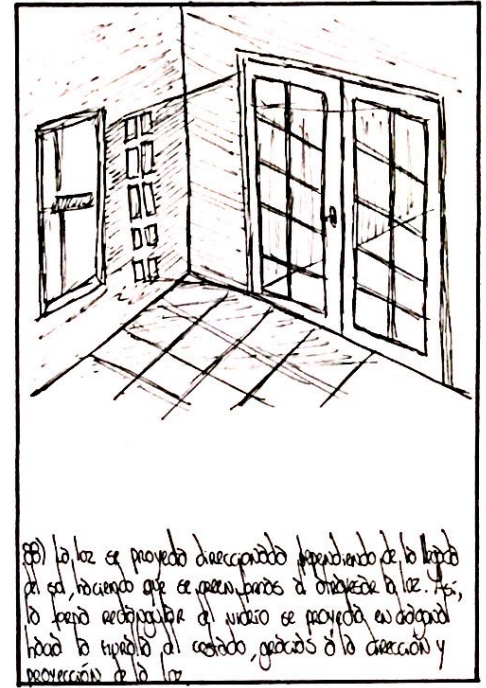 88) La loz se proyecta direccionada dependiendo de la llegada
del sol, haciendo que se creen formas al atravesar la loz. Así,
la forma rectangular del vidrio se proyecta en diagonal
hacia la muralla al costado, gracias a la dirección y
proyección de la loz